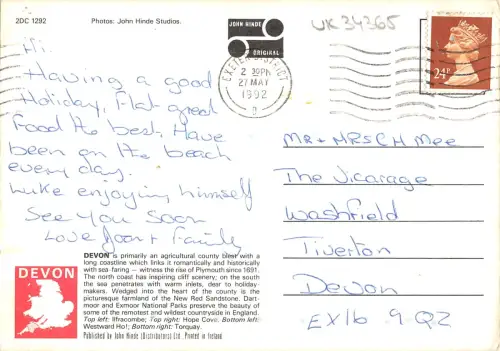 2DC 1292
Photos: John Hinde Studios.
JOHN HINDE
ORIGINAL
UK34365
24P
EXETER DISTRICT
2 30PM
27 MAY
1992
Hi.
Having a good
Holiday, Flat great
Food the best. Have
been on the beach
every day.
Luke enjoying himself
See You Soon
Love & Family
Mr & MRS C H Mee
The Vicarage
Washfield
Tiverton
Devon
EX16 9QZ
DEVON
DEVON is primarily an agricultural county blest with a
long coastline which links it romantically and historically
with sea-faring – witness the rise of Plymouth since 1691.
The north coast has inspiring cliff scenery; on the south
the sea penetrates with warm inlets, dear to holiday-
makers. Wedged into the heart of the county is the
picturesque farmland of the New Red Sandstone. Dart-
moor and Exmoor National Parks preserve the beauty of
some of the remotest and wildest countryside in England.
Top left: Ilfracombe; Top right: Hope Cove. Bottom left:
Westward Ho!; Bottom right: Torquay.
Published by John Hinde (Distributors) Ltd. Printed in Ireland